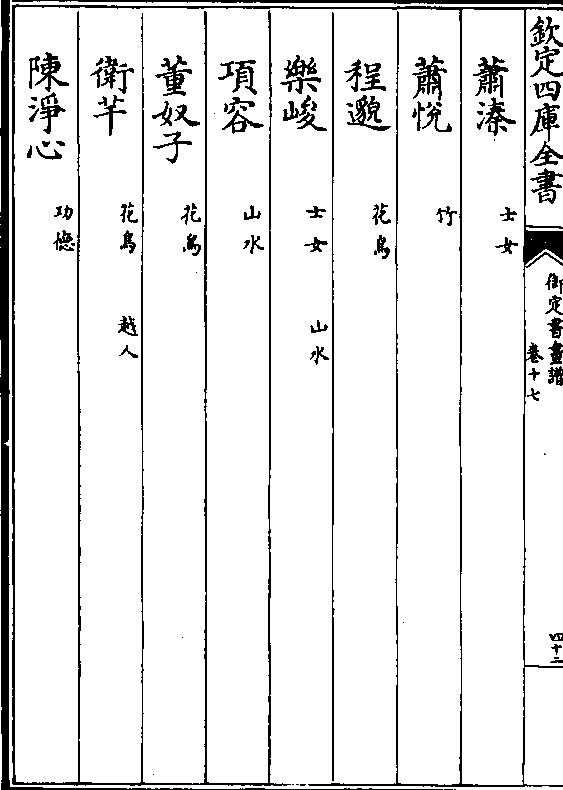 欽定四庫全書
御定書畫譜
卷十七
四十二
蕭溱 士女
蕭悅 竹
程邈 花鳥
樂峻 士女 山水
項容 山水
董奴子 花鳥
衛芊 花鳥 越人
陳淨心 功德